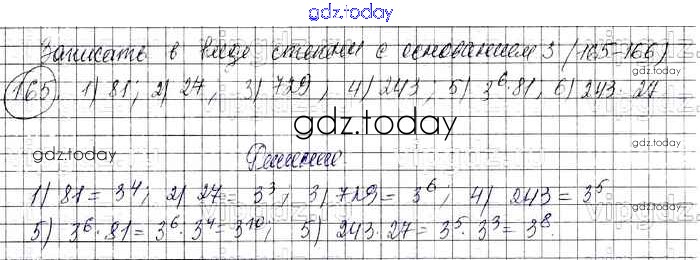 gdz.today
Записать в виде степени с основанием 3 (165-166)
gdz.today
165. 1) 81; 2) 27, 3) 729, 4) 243; 5) 3⁶·81, 6) 243·27
gdz.today
gdz.today
Решение
gdz.today
1) 81 = 3⁴; 2) 27 = 3³, 3) 729 = 3⁶; 4) 243 = 3⁵
5) 3⁶·81 = 3⁶·3⁴ = 3¹⁰; 5) 243·27 = 3⁵·3³ = 3⁸.